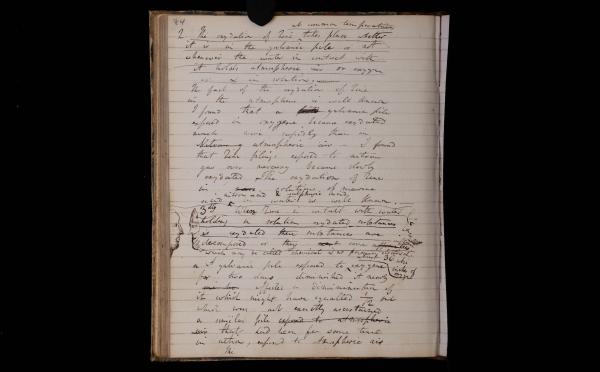 84
at common temperatures
2 The oxydation of Zinc takes place whether
it is in the galvanic pile or not
whenever the water in contact with
it holds atmospheric air or oxygen
in solution.
The fact of the oxydation of Zinc
in the atmosphere is well known
I found that a galvanic pile
exposed in oxygene became oxydated
much more rapidly than in
atmospheric air – I found
that Zinc filings exposed to nitrous
gas over mercury became slowly
oxydated & The oxydation of Zinc
in solutions of marine
nitrous and sulphuric acid
acid in water is well known.
3dly When Zinc in contact with water
holding in solution oxydating substances
is oxydated these substances are
decomposed
which any in other chemical
about 36 cubic
A galvanic pile exposed to oxygene
inches of
for two days diminished it nearly
a diminution of
it which might have equalled 1/2 but
which was not exactly ascertained
a similar pile exposed to atmospheric
that had been for some time
in action, exposed to atmospheric air
The